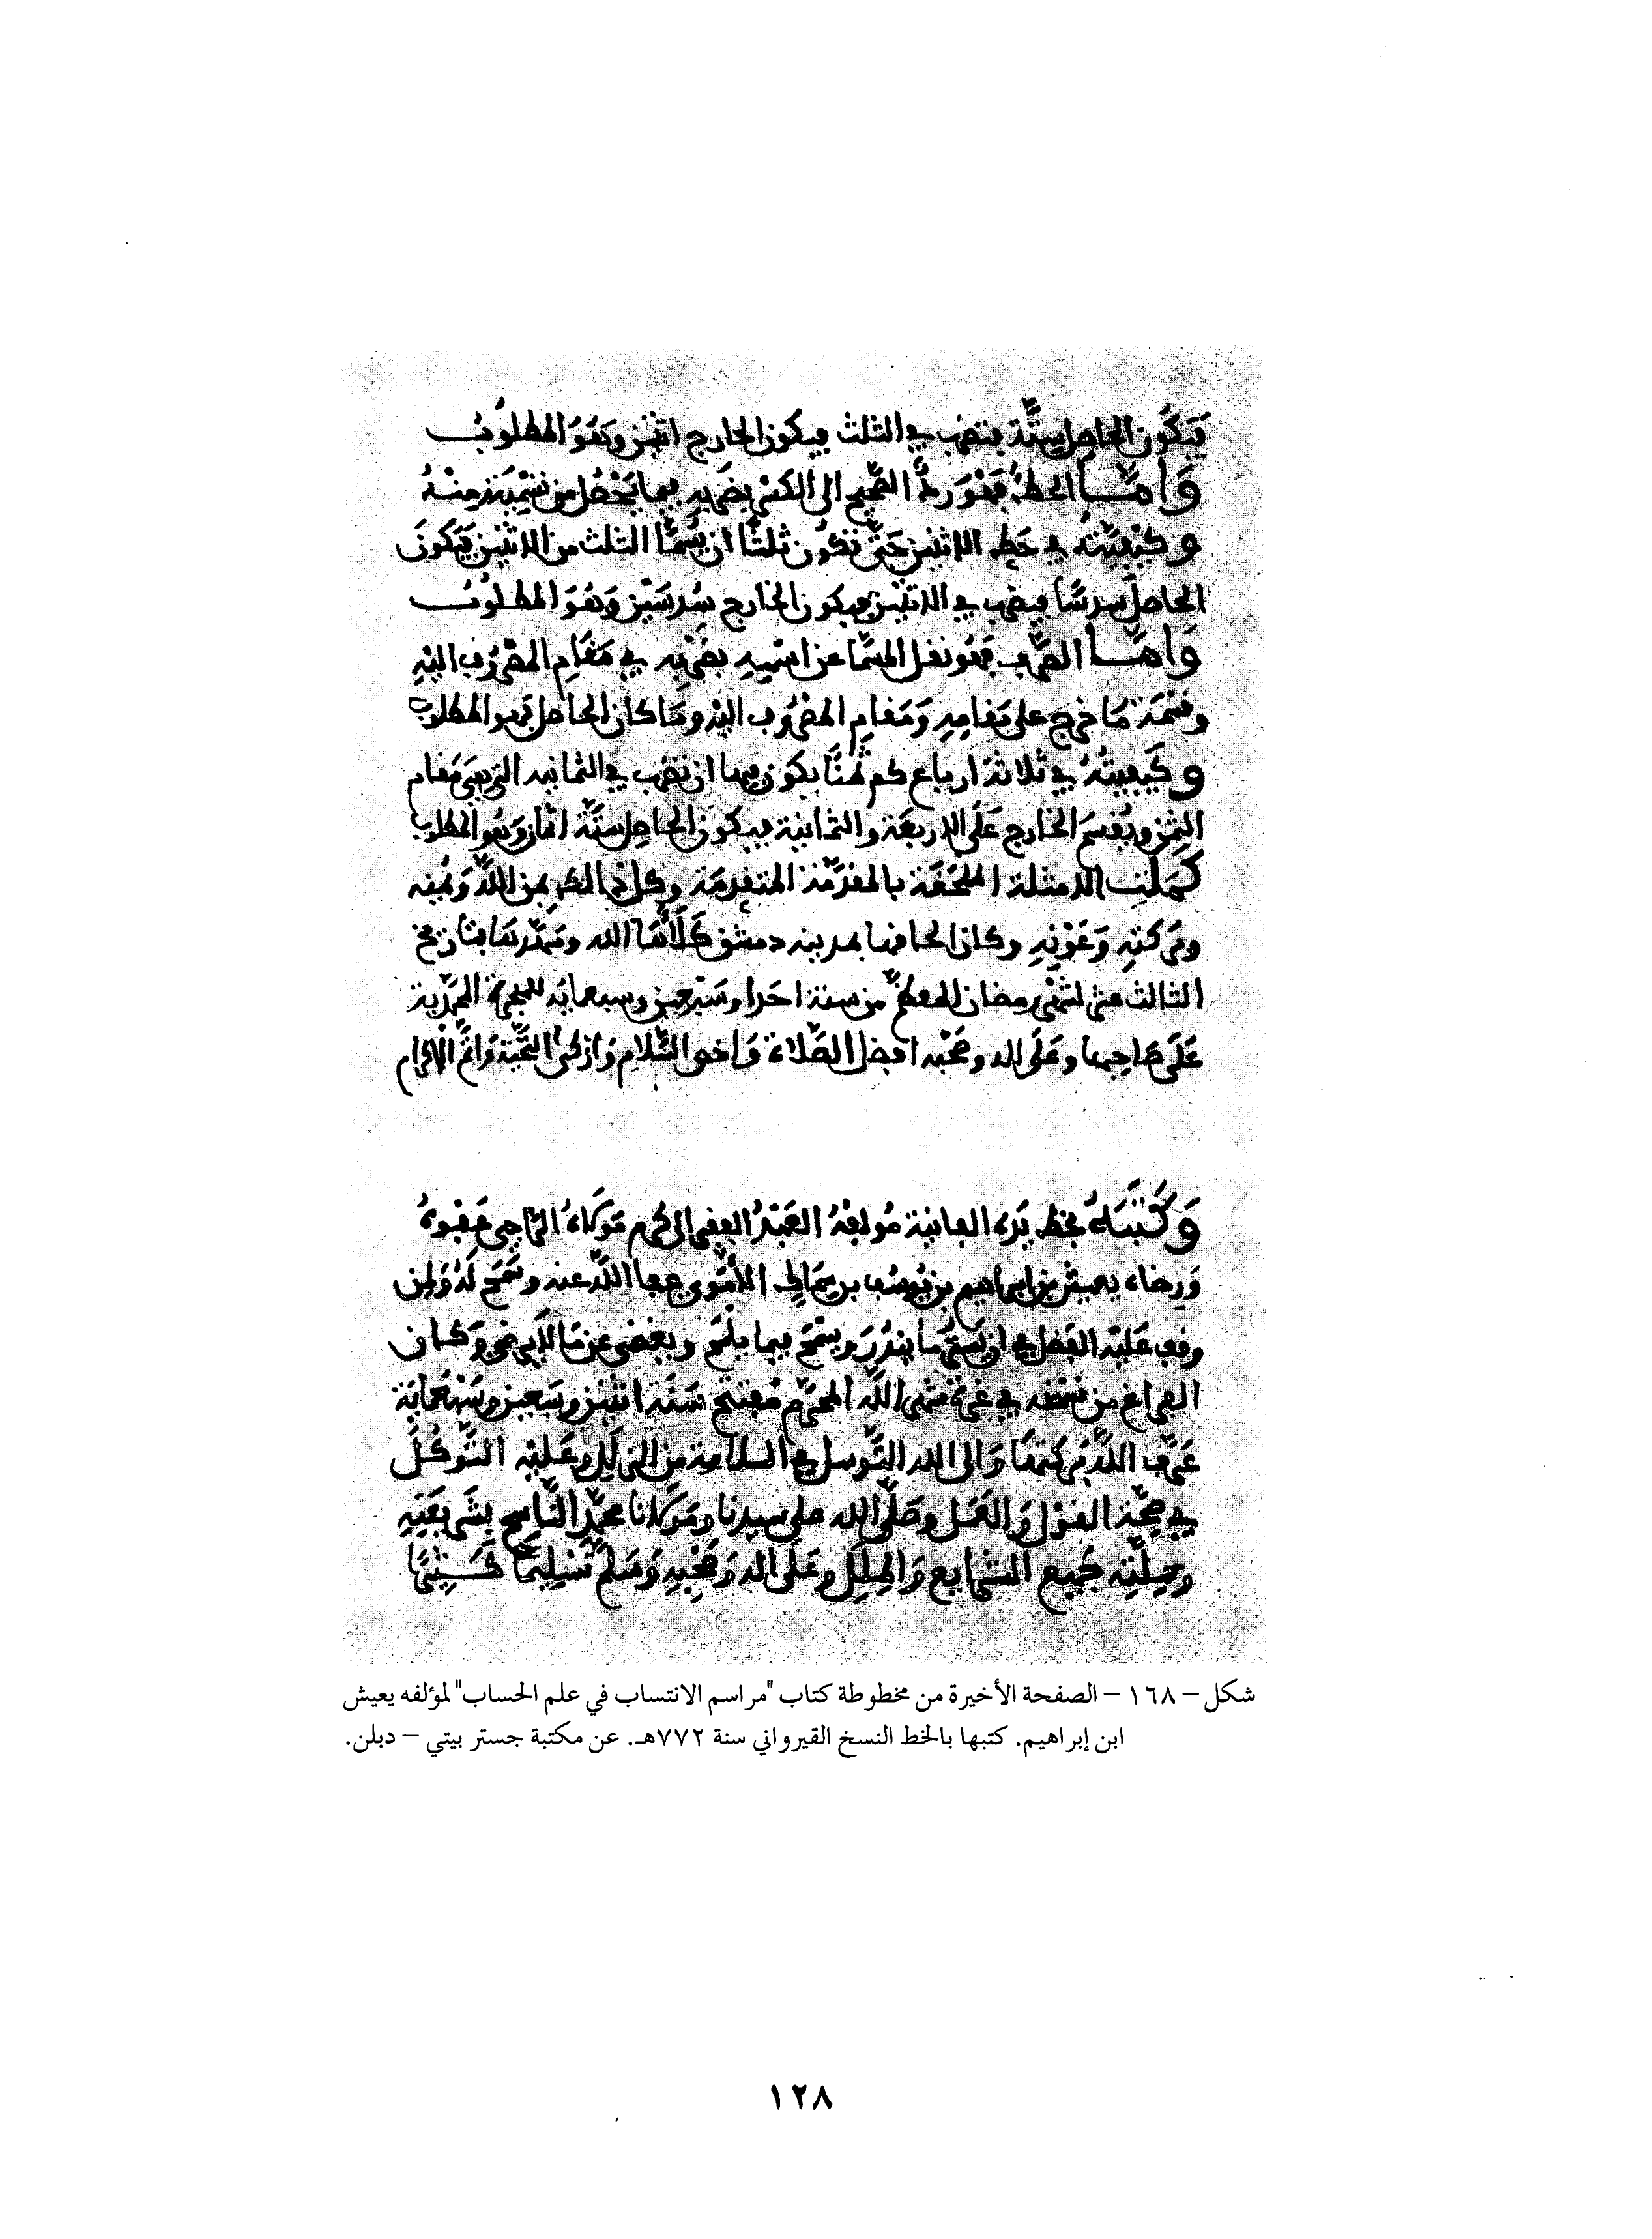 فَيَكُون الحاصل ستّة يضرب في الثلث فيكون الخارج اثنين وهُوَ المطلُوب
وَأمّــا الحطّ فهُوَ ردّ الصّحيح الى الكسر بضربه فيما يَحْصُل من تسْمِيَته منه
وكيفيّتُه في حَط الاثنين حَتّى تكُون ثلثًا ان يُسَمّا الثلث من الاثنين فيَكون
الحاصلُ سدسًا فيضرب في الاثنين فيكون الخارج سُدسَيْن وَهُوَ المطلُوب
وَأمّــا الصّرف فهُو نقل المسَمّا عن اسْمِه بضَرْبه في مَقام المصْرُوف اليْهِ
وقسْمَة مَا خرج على مَقامِهِ وَمَقامِ المصْرُوف اليْه ومَا كان الحاصل فهو المطلوب
وكَيفِيتُهُ في ثلاثة ارباع كم ثمنًا يكون فيها ان تضرب في الثمانية التي هِيَ مَقام
الثمن ويُقسَم الخارج عَلَى الاربعَة والثمانِية فيكون الحاصل ستَّة اثمان وَهُو المطلوب
كمَلَت الامثلة الملحَقَة بالمقدّمَة المتقدِمَة وكل ذالك بمن اللَّه وَيُمنه
وبَركَتِهِ وَعَوْنِهِ وكان الحاقها بمدينة دمشق كَلَأَهَا الله ومَهّدهَا بتاريخ
الثالث عشر لشهْر رمضان المعظّم من سنة احَدا وسَبْعين وسبعماية للهجرة المحمّدية
عَلَى صاحِبها وعَلَى اله وصَحْبه افضل الصَّلاة وَاخص السَّلام وَازكى التّحِيّة وَاتمّ الاكرام
وَكَتَبَهُ بخط يَده الفانِيَة مُولفهُ العَبْدُ الفقير الى كرم مَوْلاهُ الرّاجي عَفْوهُ
وَرِضاه يعيش بن ابراهيم بن يُوسُف بن سِمَاك الأمَوي عفا اللَّه عنه وسَمَح لهُ وَلمن
وقف عَلَيْه الفَضل في ان يَستُر مَا يبْدُرُ ويسْمَحَ فيما يلْمَح ويغضى عن مَا لا يرضى وكــان
الفراغ من نسْخه في غرّة شهْر اللَّه المحَرّم مفتتح سَنَة اثنين وسَبعين وسَبْعمَاية
عَرّف اللَّه بَركتهَا وَالى الله التَّوسل في السلامة من الزلَل وعَليْه التَّوكُل
في صِحّة القوْل وَالعَمَل وصَلَّى الله على سيدنا ومَوْلانا محمّد النّاسِخ بشَريعَتِهِ
ومِلَّتِه جَمِيع الشرايع وَالملَل وعَلَى اله وَصَحْبِهِ وَسَلم تَسْليمًا كــثيرًا
شكل – ١٦٨ – الصفحة الأخيرة من مخطوطة كتاب "مراسم الانتساب في علم الحساب" لمؤلفه يعيش
ابن إبراهيم. كتبها بالخط النسخ القيرواني سنة ٧٧٢هـ. عن مكتبة جستر بيتي – دبلن.
١٢٨